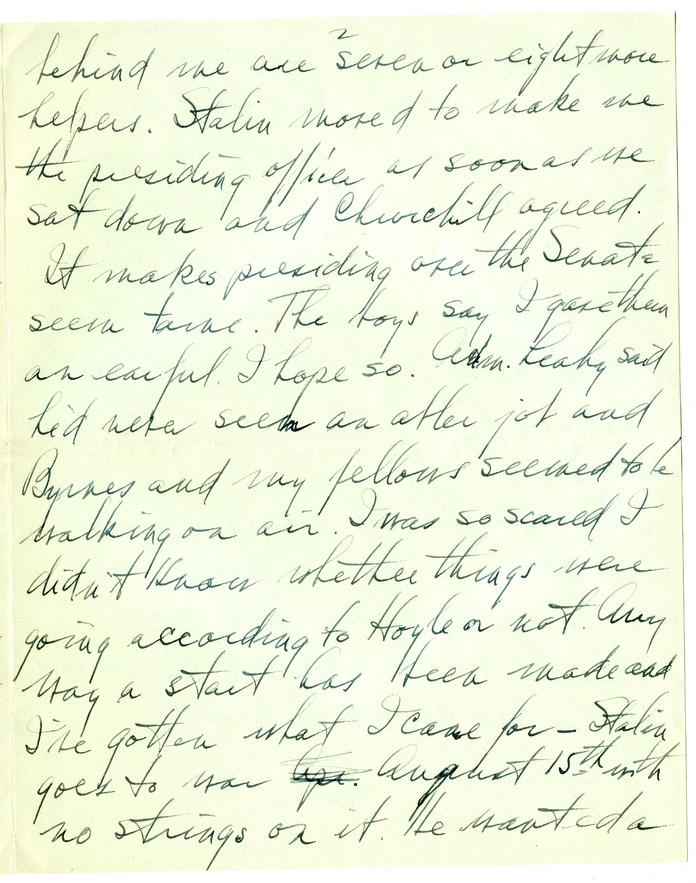 2
behind me are seven or eight more
helpers. Stalin moved to make me
the presiding officer as soon as we
sat down and Churchill agreed.
It makes presiding over the Senate
seem tame. The boys say I gave them
an earful. I hope so. Adm. Leahy said
he'd never seen an abler job and
Byrnes and my fellows seemed to be
walking on air. I was so scared I
didn't know whether things were
going according to Hoyle or not. Any
way a start has been made and
I've gotten what I came for – Stalin
goes to war August 15th with
no strings on it. He wanted a